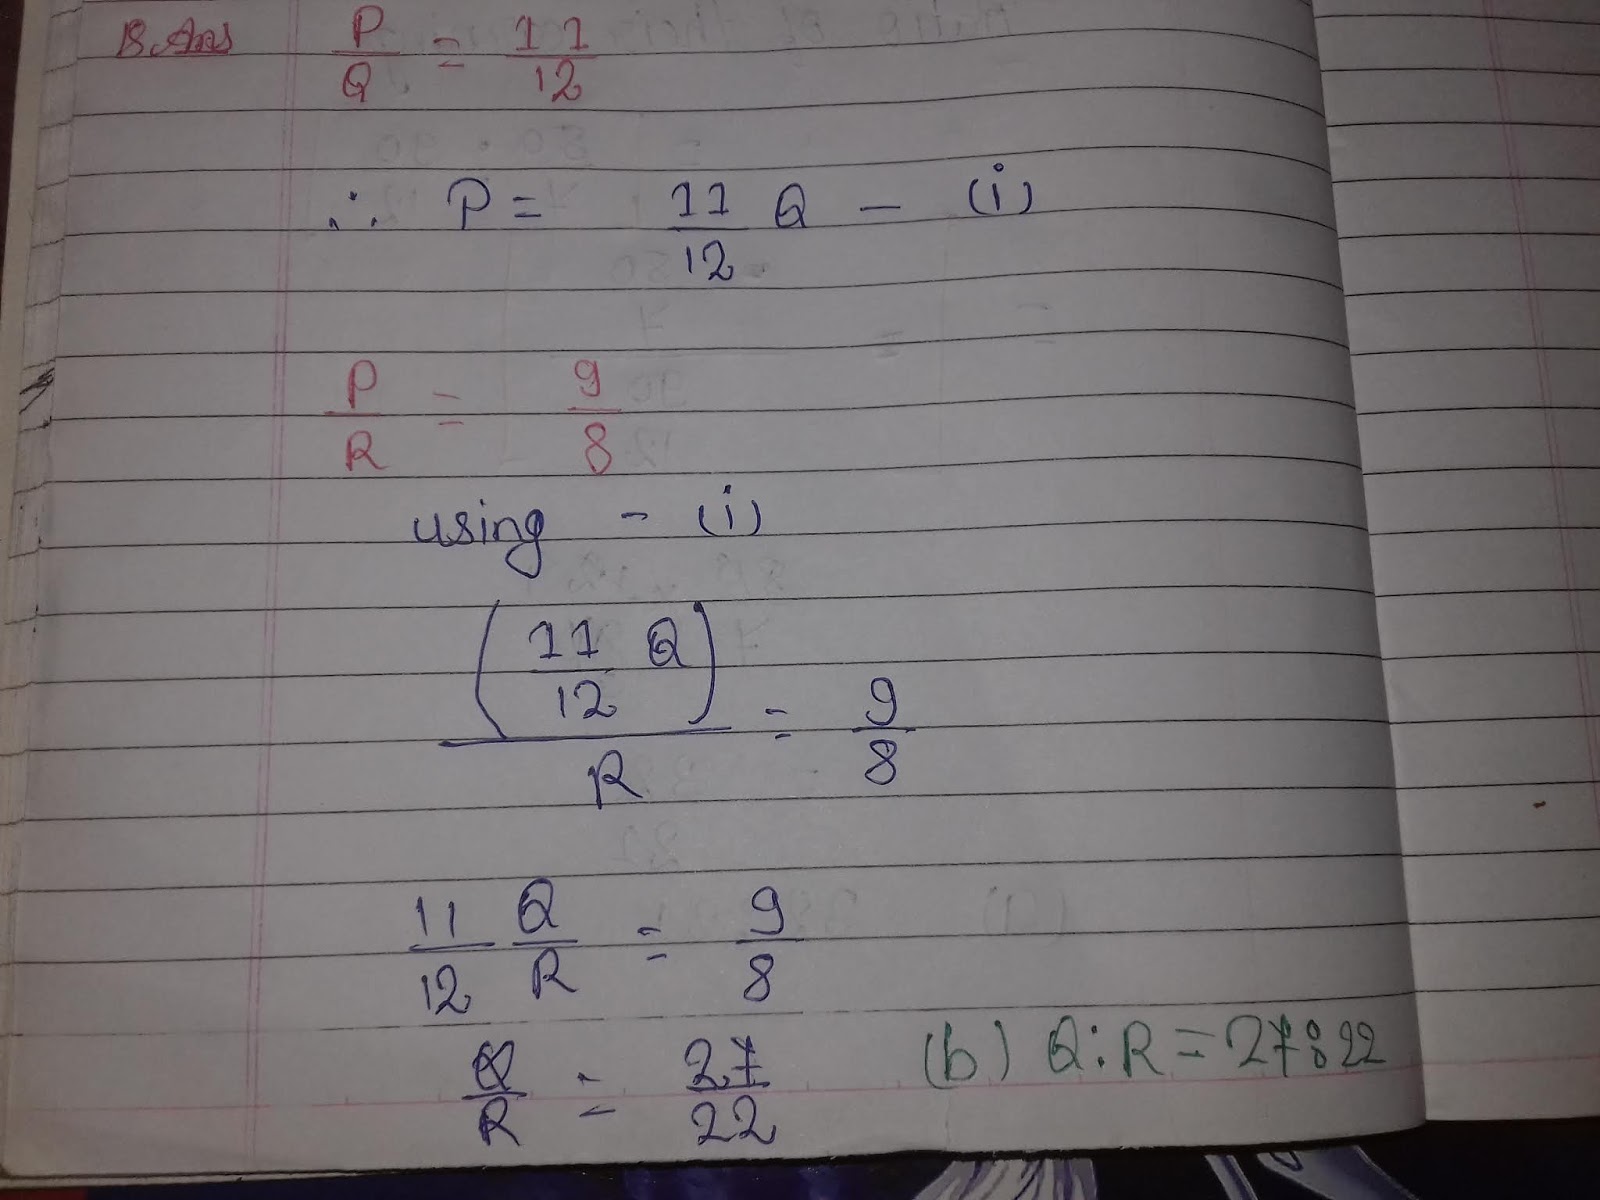 18. Ans P/Q = 11/12
∴ P = 11/12 Q – (i)
P/R = 9/8
using – (i)
(11/12 Q)/R = 9/8
11/12 Q/R = 9/8
Q/R = 27/22 (b) Q:R = 27:22